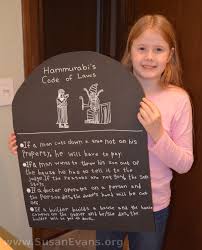 Hammurabi's
Code of Laws
• If a man cuts down a tree not on his
Property, he will have to pay.
• If a man wants to throw his son out of
the house he has to tell it to the
judge. If the reasons are not good, the son
stays.
• If a doctor operates on a person and
the person dies, the doctor's hand will be cut
off.
• If a builder builds a house and the house
the owner dies, the
builder will
www.SusanEvans.org